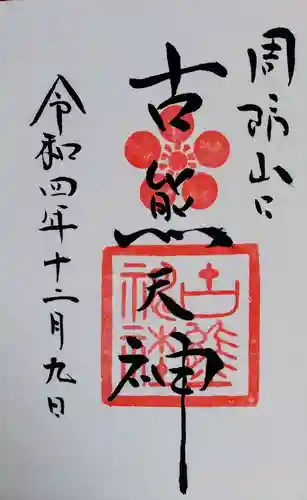 周防山口
古熊天神
古熊神社
令和四年十二月九日